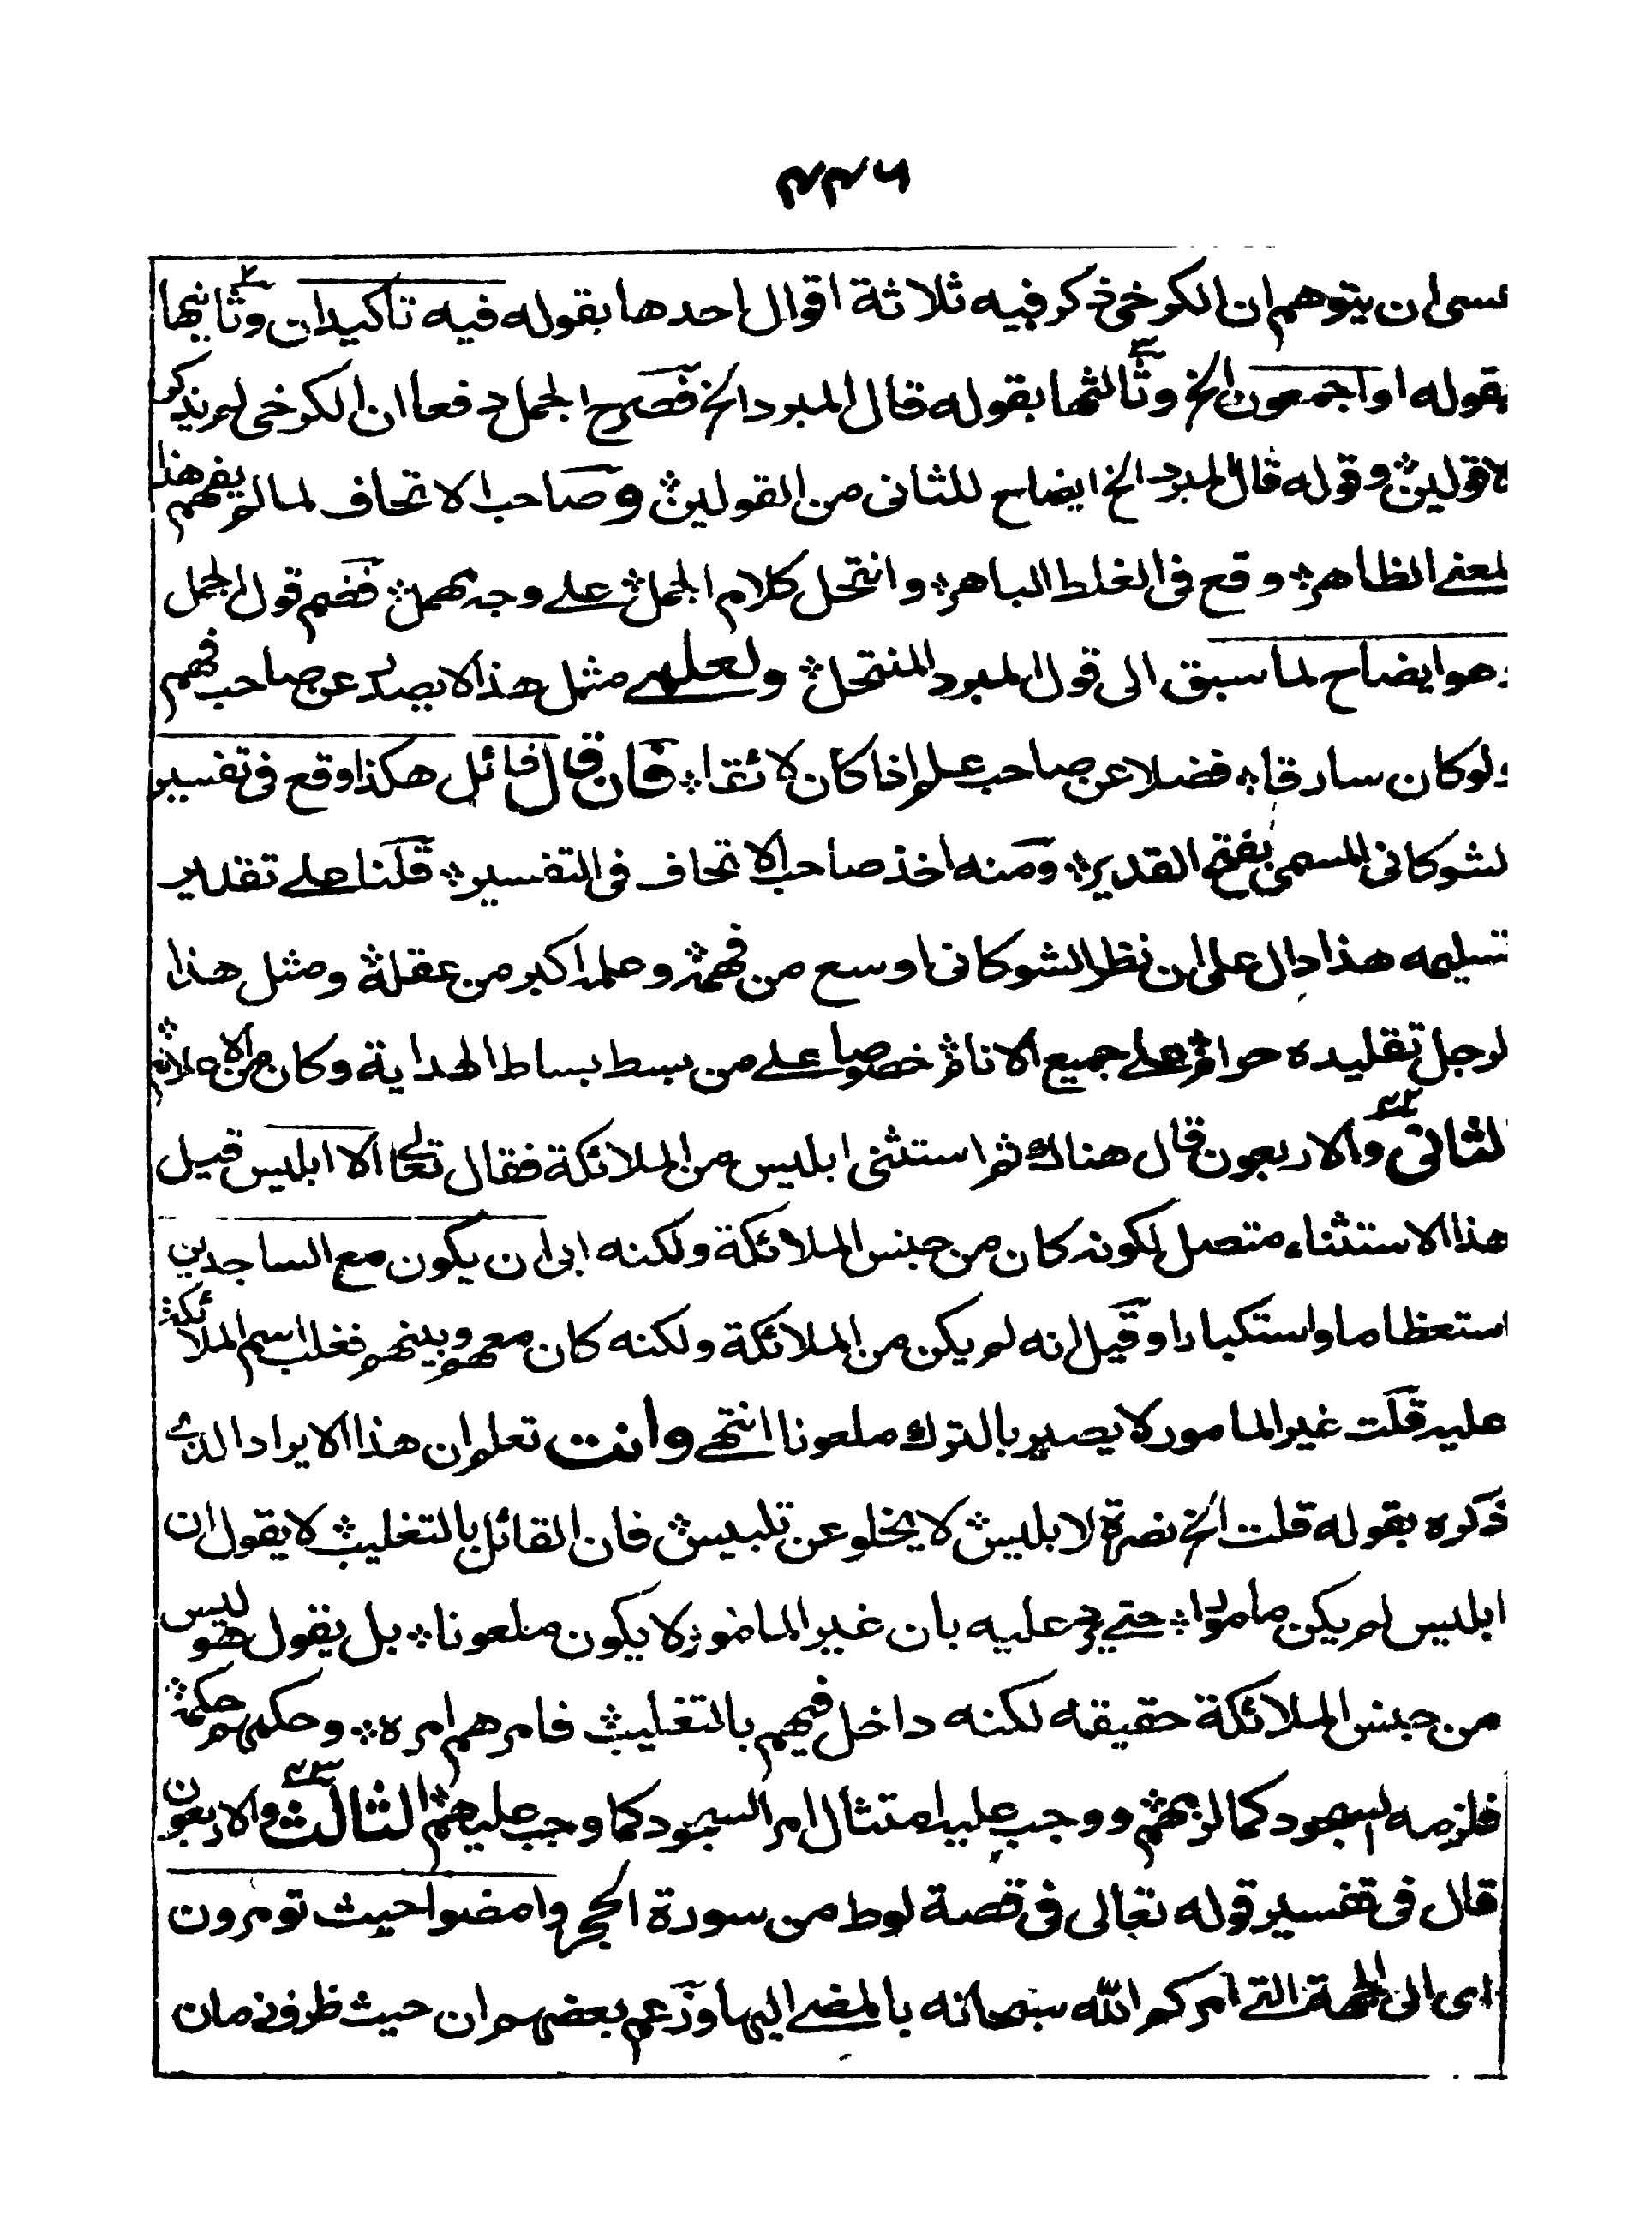 ۲۳۶
عسى ان يتوهم ان الكرخى ذكر فيه ثلاثة اقوال احدها بقوله فيه تأكيدان وثانيها
بقوله او اجمعون الخ وثالثها بقوله قال المبرد الخ فصرح الجمل دفعا ان الكرخى لم يذكر
لا قولين وقوله قال المبرد الخ ايضاح للثانى من القولين وصاحب الاتحاف لما لم يفهم هذا
لمعنے الظاهر وقع فى الغلط الباهر وانتحل كلام الجمل علے وجه مهمل ففهم قول الجمل
وهو ايضاح لما سبق الى قول المبرد المنتحل ولعلے مثل هذا لا يصدر عن صاحب فهم
ولو كان سارقا فضلا عن صاحب علم اذا كان لائقا فان قال قائل هكذا وقع فى تفسير
لشوكانى المسمى بفتح القدير ومنه اخذ صاحب الاتحاف فى التفسير قلنا علے تقدير
تسليمه هذا دال على ان نظر الشوكانى اوسع من فهمه وعلمه اكبر من عقله ومثل هذا
لرجل تقليده حرام علے جميع الانام خصوصا علے من بسط بساط الهداية وكان من الاعلام
لثانى والاربعون قال هناك ثم استثنى ابليس من الملائكة فقال تعالى الا ابليس قيل
هذا الاستثناء متصل لكونه كان من جنس الملائكة ولكنه ابى ان يكون مع الساجدين
استعظاما واستكبارا وقيل انه لم يكن من الملائكة ولكنه كان معهم وبينهم فغلب اسم الملائكة
عليه قلت غير المامور لا يصير بالترك ملعونا انتهے وانت تعلم ان هذا الايراد الذے
ذكره بقوله قلت الخ نصرة لابليس لا يخلو عن تلبيس فان القائل بالتغليب لا يقول ان
ابليس لم يكن مامورا حتے يرد عليه بان غير المامور لا يكون ملعونا بل يقول هو ليس
من جنس الملائكة حقيقة لكنه داخل فيهم بالتغليب فامرهم امره وحكمهم حكمه
فلزمه السجود كما لزمهم ووجب عليه امتثال امر السجود كما وجب عليهم الثالث والاربعون
قال فى تفسير قوله تعالى فى قصة لوط من سورة الحجر وامضوا حيث تومرون
اى الى الجهة التے امركم الله سبحانه بالمضے اليها وزعم بعضهم ان حيث ظرف زمان